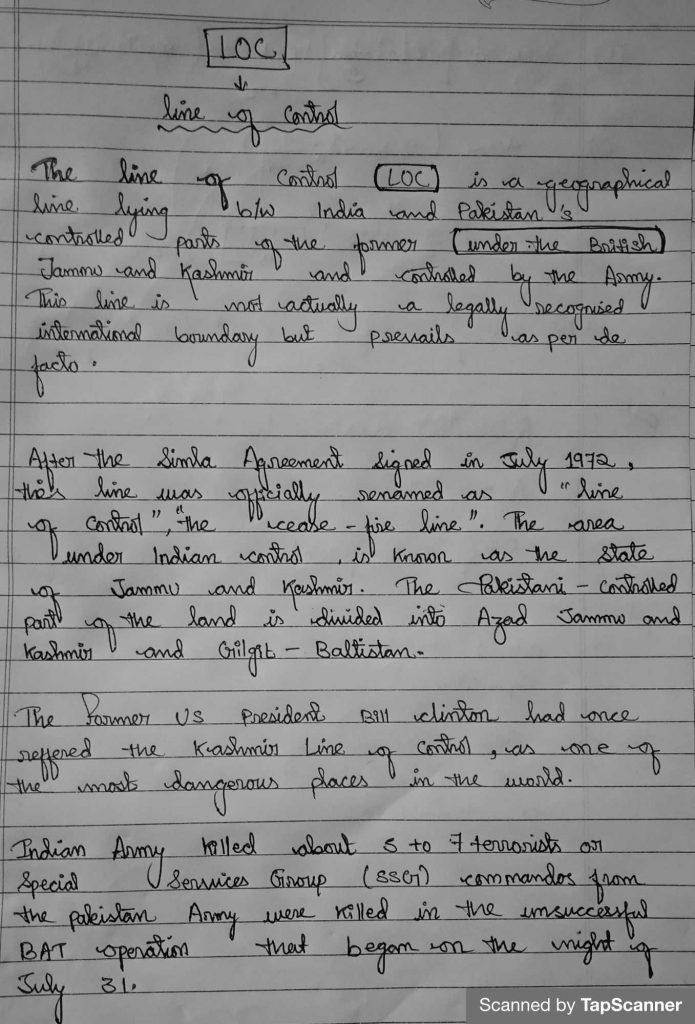 LOC
↓
line of Control
The line of Control (LOC) is a geographical
line lying b/w India and Pakistan's
controlled parts of the former (under the British)
Jammu and Kashmir and controlled by the Army.
This line is not actually a legally recognised
international boundary but prevails as per de
facto.
After the Simla Agreement signed in July 1972,
this line was officially renamed as "line
of Control", "the cease-fire line". The area
under Indian control, is known as the state
of Jammu and Kashmir. The Pakistani-controlled
part of the land is divided into Azad Jammu and
Kashmir and Gilgit-Baltistan.
The Former US President Bill clinton had once
reffered the Kashmir Line of control, as one of
the most dangerous places in the world.
Indian Army killed about 5 to 7 terrorists or
Special Services Group (SSG) commandos from
the pakistan Army were killed in the unsuccessful
BAT operation that began on the night of
July 31.
Scanned by TapScanner